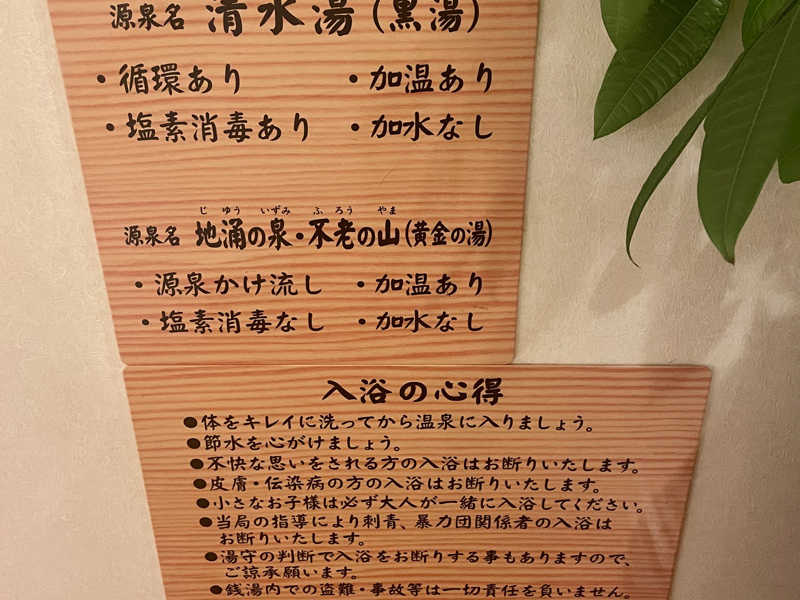 源泉名 清水湯(黒湯)
・循環あり ・加温あり
・塩素消毒あり ・加水なし
じ ゆう いずみ ふ ろう やま
源泉名 地涌の泉・不老の山(黄金の湯)
・源泉かけ流し ・加温あり
・塩素消毒なし ・加水なし
入浴の心得
●体をキレイに洗ってから温泉に入りましょう。
●節水を心がけましょう。
●不快な思いをされる方の入浴はお断りいたします。
●皮膚・伝染病の方の入浴はお断りいたします。
●小さなお子様は必ず大人が一緒に入浴してください。
●当局の指導により刺青、暴力団関係者の入浴は
お断りいたします。
●湯守の判断で入浴をお断りする事もありますので、
ご諒承願います。
●銭湯内での盗難・事故等は一切責任を負いません。